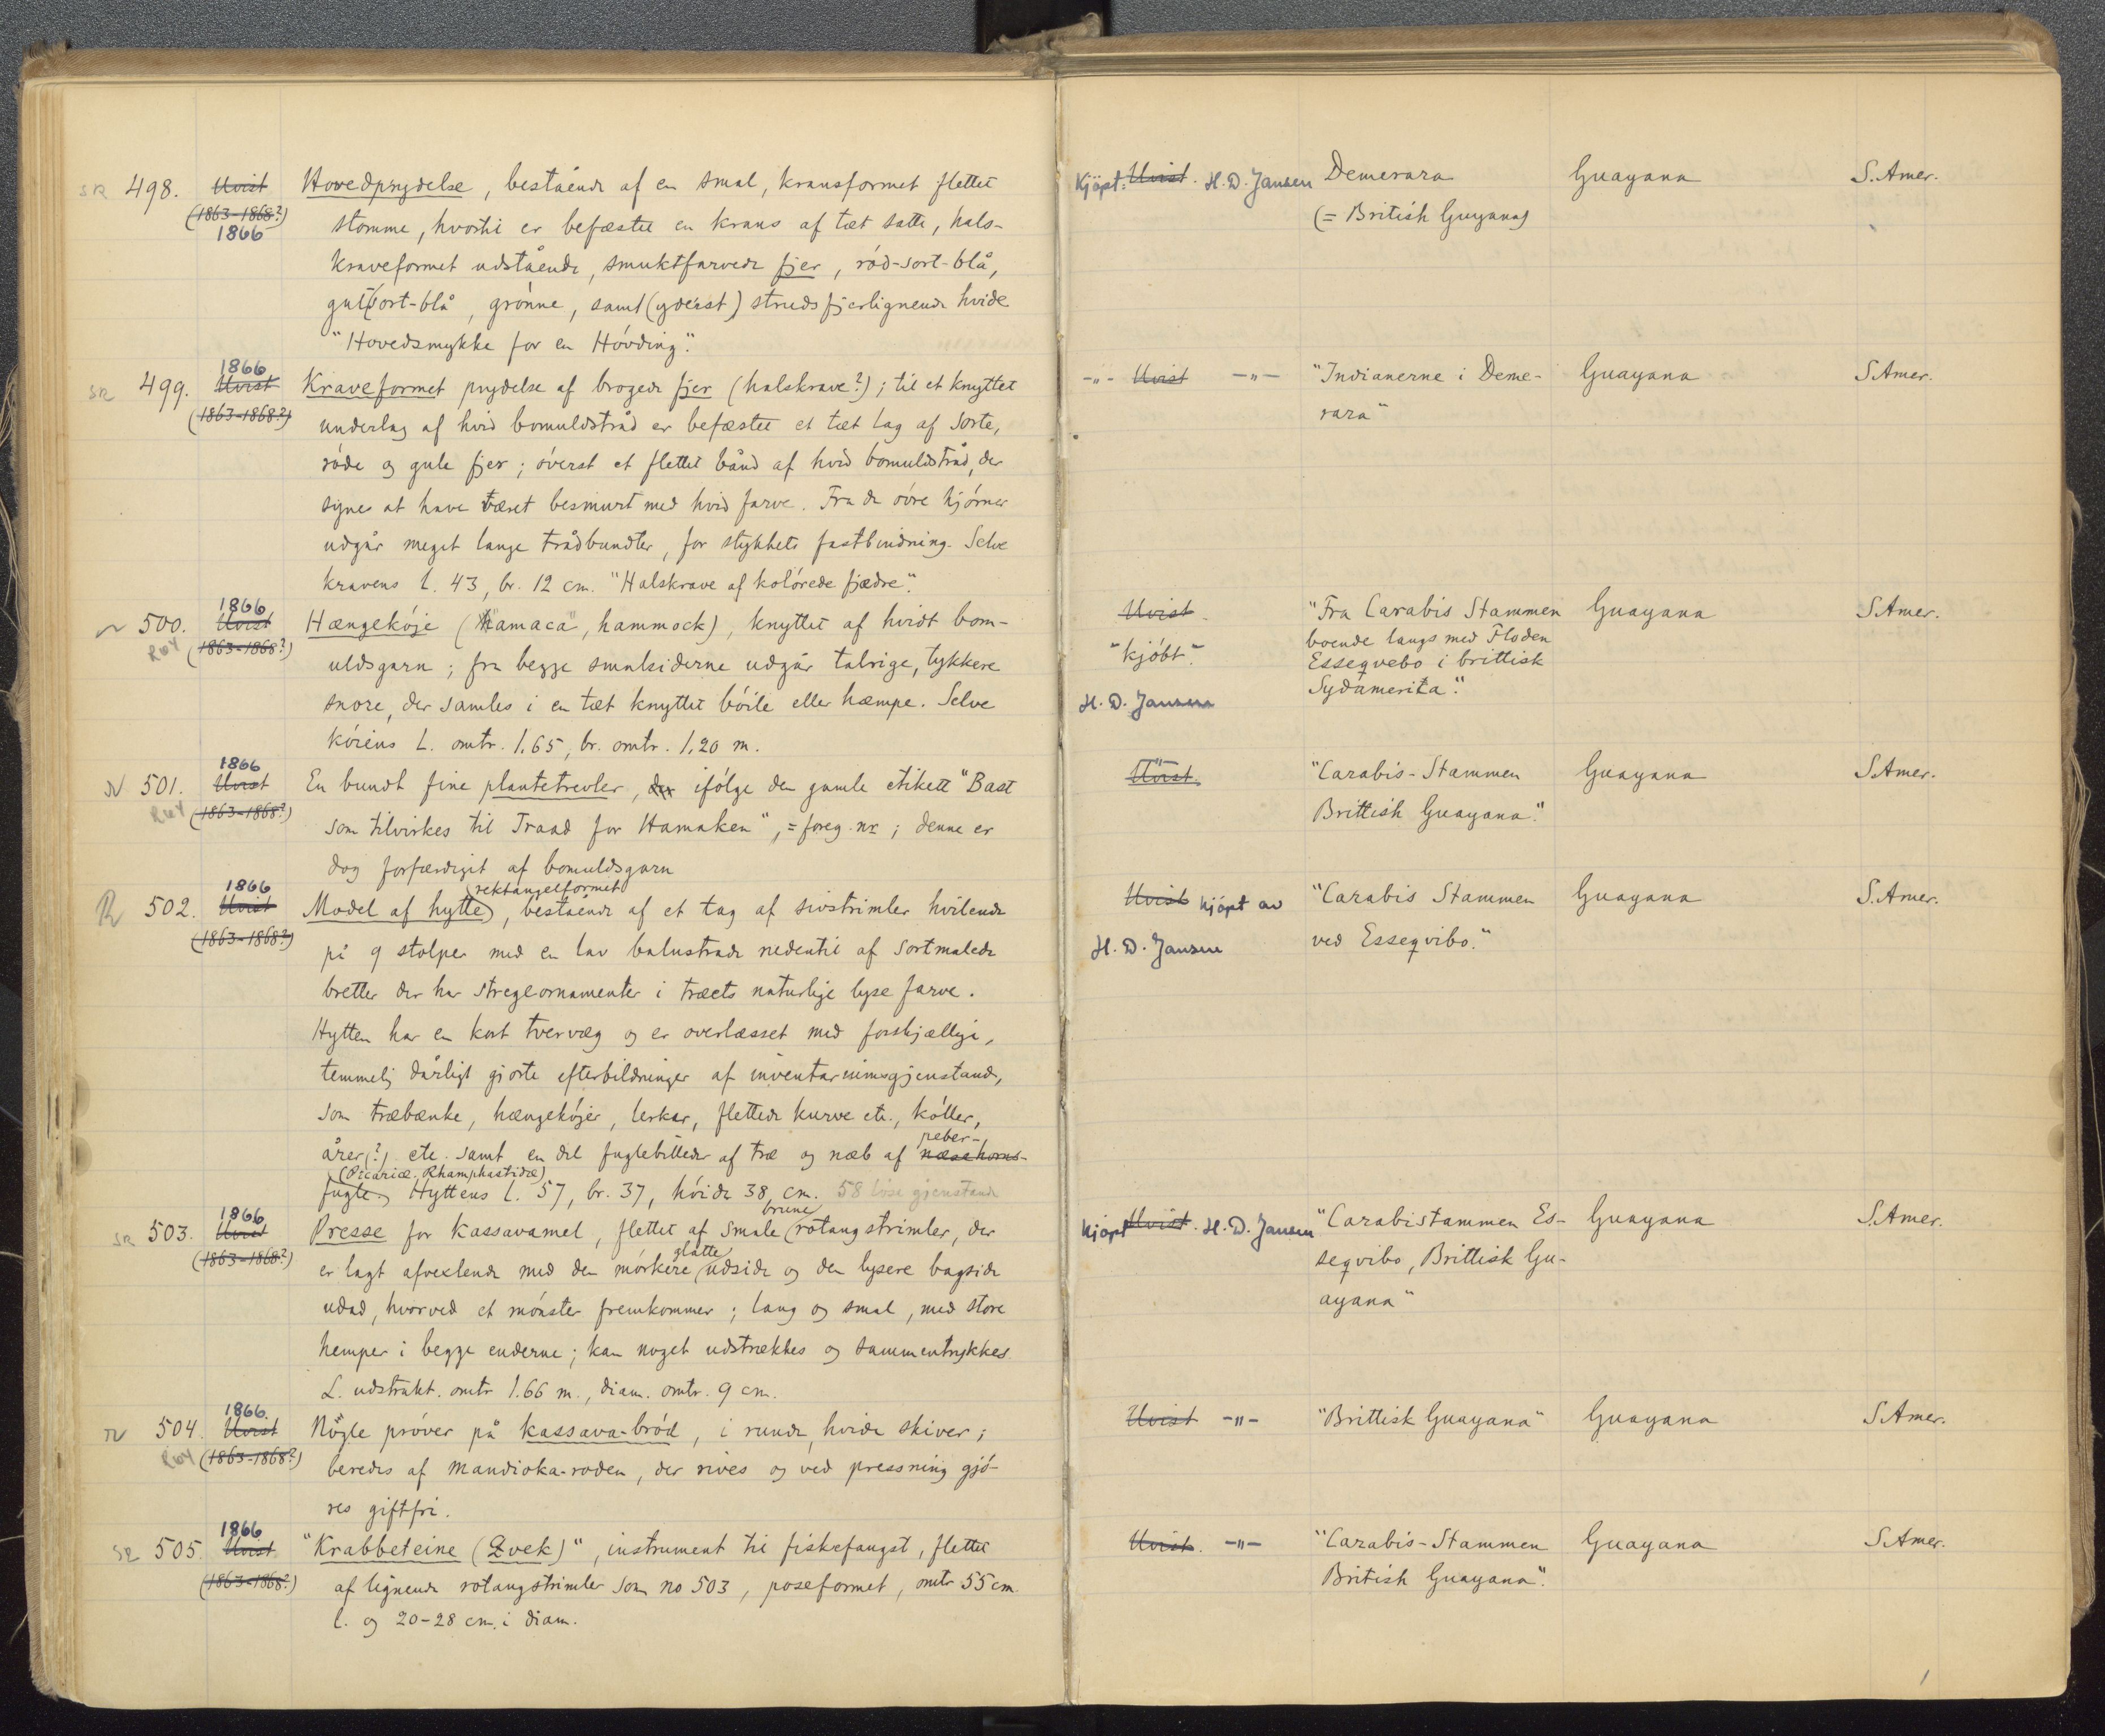 SR 498. Uvist Hovedprydelse, bestående af en smal, kransformet flettet
(1863-1868?)
1866
stomme, hvortil er befæstet en krans af tæt satte, hals-
kraveformet udstående, smuktfarvede fjer, rød-sort-blå,
gul-sort-blå, grönne, samt (yderst) strudsfjerlignende hvide
"Hovedsmykke for en Hövding".
Kjöpt: Uvist. H. D. Jansen Demerara Guayana S. Amer.
(= British Guyana)
SR 499. 1866
Uvist Kraveformet prydelse af brogede fjer (halskrave?); til et knyttet
(1863-1868?)
underlag af hvid bomuldstråd er befæstet et tæt lag af sorte,
röde og gule fjer; överst et flettet bånd af hvid bomuldstråd, der
synes at have været besmurt med hvid farve. Fra de övre hjörner
udgår meget lange trådbundter, for stykkets fastbindning. Selve
kravens l. 43, br. 12 cm. "Halskrave af kolörede fjædre".
-"- Uvist -"- "Indianerne i Deme- Guayana S. Amer.
rara"
500. 1866
Uvist Hængeköje ("hamaca", hammock), knyttet af hvidt bom-
R64 (1863-1868?)
uldsgarn; fra begge smalsiderne udgår talrige, tykkere
snore, der samles i en tæt knyttet böile eller hæmpe. Selve
köiens L. omtr. 1.65, br. omtr. 1,20 m.
Uvist "Fra Carabis Stammen Guayana S. Amer.
"kjöbt". boende langs med Floden
Esseqvebo i brittisk
H. D. Jansen Sydamerika".
N 501. 1866
Uvist En bundt fine plantetrevler, der ifölge den gamle etikett "Bast
R64 (1863-1868?)
som tilvirkes til Traad for Hamaken", = foreg. nr; denne er
dog forfærdiget af bomuldsgarn
-"-
Uvist. "Carabis-Stammen Guayana S. Amer.
Brittish Guayana".
R 502. 1866
rektangelformet
Uvist Model af hytte, bestående af et tag af sivstrimler hvilende
(1863-1868?)
på 9 stolper med en lav balustrade nedentil af sortmalede
bretter der har stregeornamenter i træets naturlige lyse farve.
Hytten har en kort tvervæg og er overlæsset med forskjællige,
temmelig dårligt gjorte efterbildninger af inventariumsgjenstande,
som træbænke, hængeköjer, lerkar, flettede kurve etc., köller,
årer(?) etc. samt en del fuglebilleder af træ og næb af næsehorns-
peber-
(Picariæ. Rhamphastidæ)
fugle. Hyttens l. 57, br. 37, höide 38 cm. 58 löse gjenstande
Uvist kjöpt av "Carabis Stammen Guayana S. Amer.
H. D. Jansen ved Esseqvibo."
SR 503. 1866
brune
Uvist Presse for kassavamel, flettet af smale rotangstrimler, der
(1863-1868?)
glatte
er lagt afvexlende med den mörkere udside og den lysere bagside
udad, hvorved et mönster fremkommer; lang og smal, med store
hemper i begge enderne; kan noget udstrækkes og sammentrykkes.
L. udstrakt. omtr 1.66 m., diam. omtr. 9 cm.
Kjöpt Uvist. H. D. Jansen "Carabistammen Es- Guayana S. Amer.
seqvibo, Brittisk Gu-
ayana"
504. 1866.
Uvist Nögle pröver på kassava-bröd, i runde, hvide skiver;
R64 (1863-1868?)
beredes af Mandioka-roden, der rives og ved pressning gjö-
res giftfri.
Uvist -"- "Brittisk Guayana" Guayana S. Amer.
SR 505. 1866
Uvist "Krabbeteine (Qvek)", instrument til fiskefangst, flettet
(1863-1868?)
af lignende rotangstrimler som no 503, poseformet, omtr 55 cm.
l. og 20-28 cm. i diam.
Uvist. -"- "Carabis-Stammen Guayana S. Amer.
British Guayana".